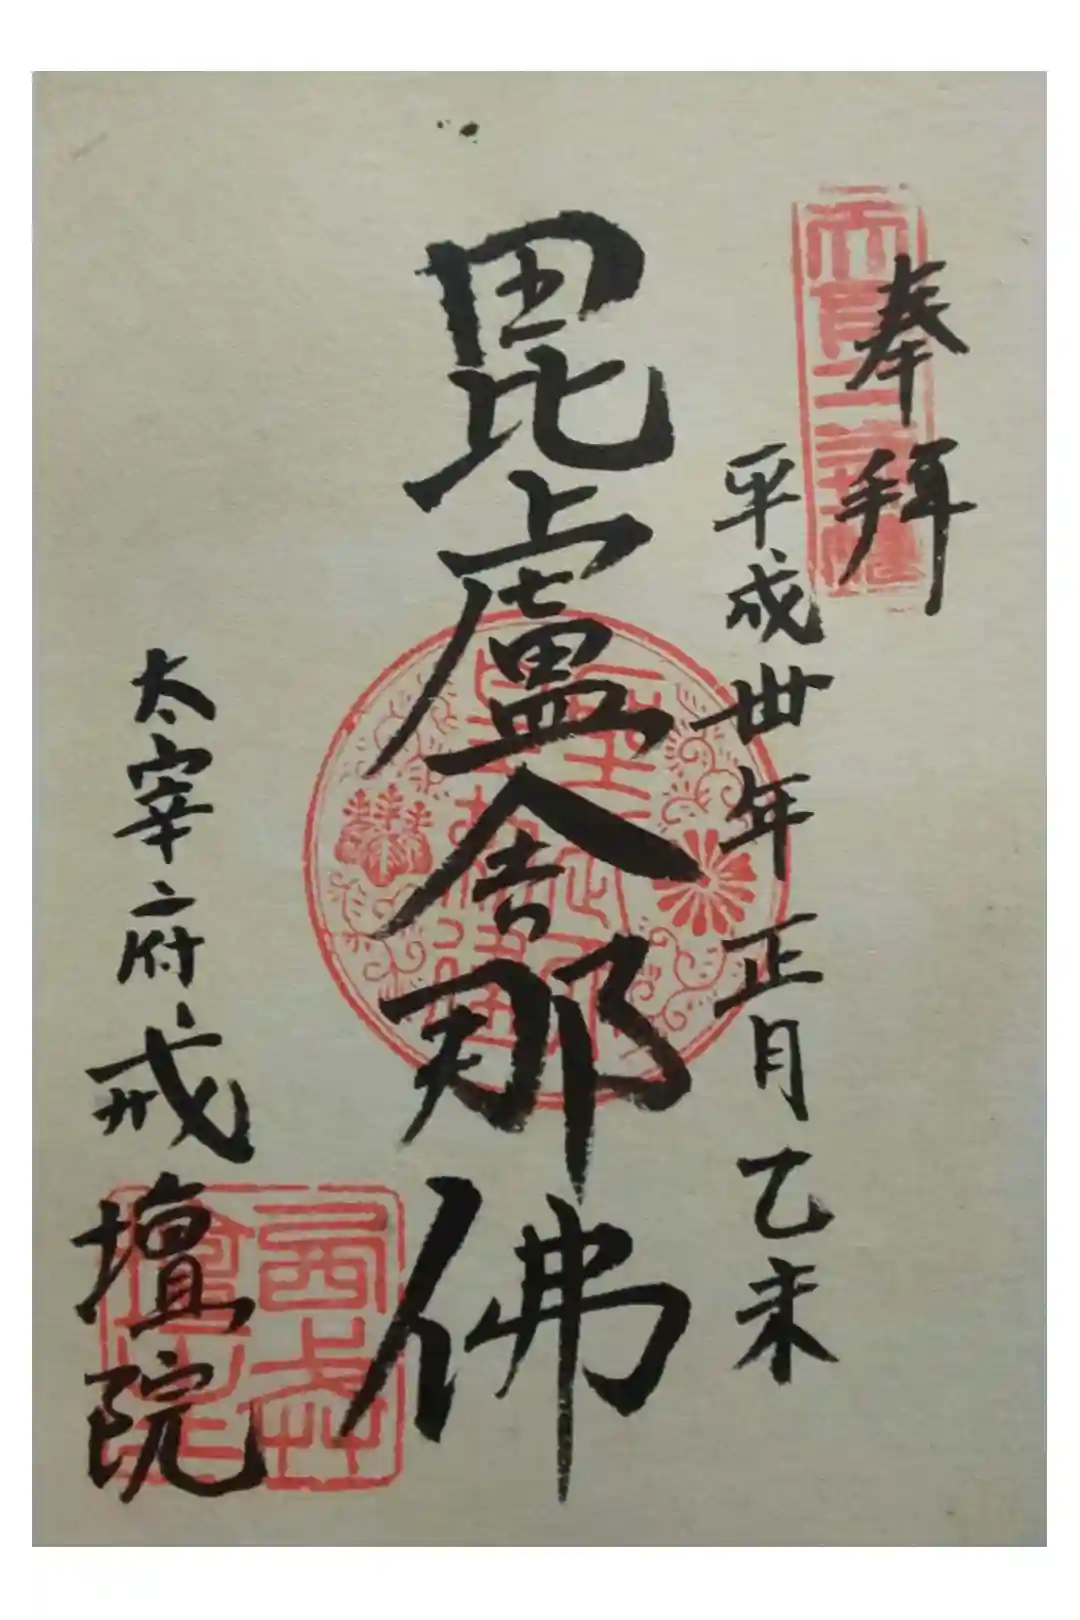 奉拝
平成丗年正月乙未
毘盧舎那佛
太宰府戒壇院